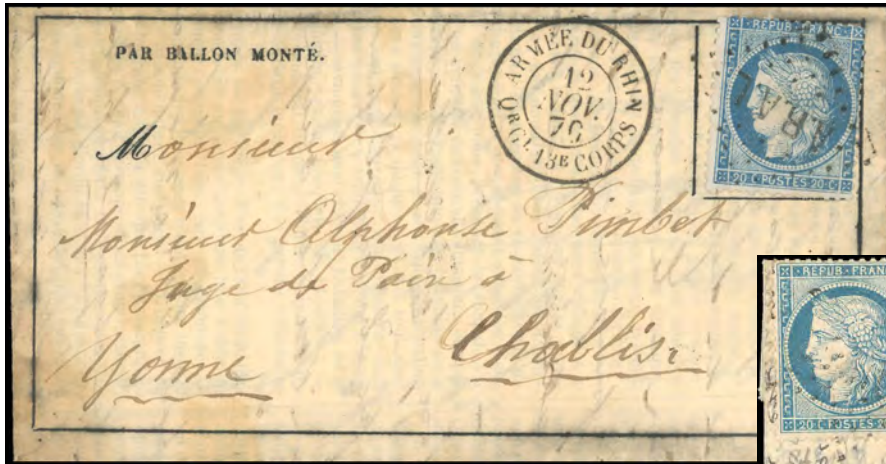 PAR BALLON MONTÉ.
ARMÉE DU RHIN
12
NOV.
70
QR GL 13E CORPS
RÉPUB FRANC
20 C POSTES 20 C
Monsieur
Monsieur Alphonse Pimbet
Juge de Paix à
Chablis
Yonne
REPUB FRANC
20 C POSTES 2